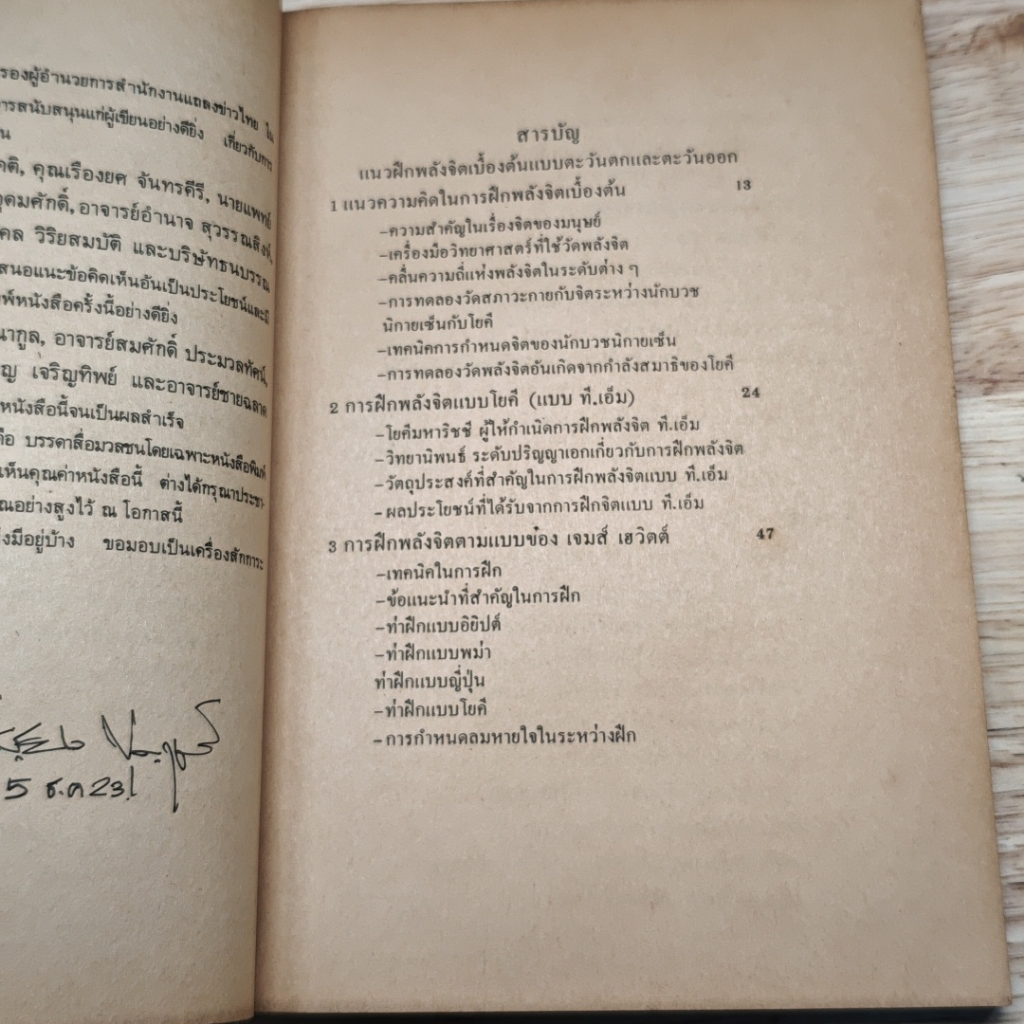 รองผู้อำนวยการสำนักงานแถลงข่าวไทย ใน
การสนับสนุนแก่ผู้เขียนอย่างดียิ่ง เกี่ยวกับการ
คติ, คุณเรืองยศ จันทรคีรี, นายแพทย์
อุดมศักดิ์, อาจารย์อำนาจ สุวรรณสิงห์,
คล วิริยสมบัติ และบริษัทธนบรรณ
เสนอแนะข้อคิดเห็นอันเป็นประโยชน์และมี
พ์หนังสือครั้งนี้อย่างดียิ่ง
นากูล, อาจารย์สมศักดิ์ ประมวลทัศน์,
ญ เจริญทิพย์ และอาจารย์ชายฉลาด
หนังสือนี้จนเป็นผลสำเร็จ
คือ บรรดาสื่อมวลชนโดยเฉพาะหนังสือพิมพ์
เห็นคุณค่าหนังสือนี้ ต่างได้กรุณาประชา-
ณอย่างสูงไว้ ณ โอกาสนี้
งมีอยู่บ้าง ขอมอบเป็นเครื่องสักการะ
5 ธ.ค 23
สารบัญ
แนวฝึกพลังจิตเบื้องต้นแบบตะวันตกและตะวันออก
1 แนวความคิดในการฝึกพลังจิตเบื้องต้น 13
–ความสำคัญในเรื่องจิตของมนุษย์
–เครื่องมือวิทยาศาสตร์ที่ใช้วัดพลังจิต
–คลื่นความถี่แห่งพลังจิตในระดับต่าง ๆ
–การทดลองวัดสภาวะกายกับจิตระหว่างนักบวช
นิกายเซ็นกับโยคี
–เทคนิคการกำหนดจิตของนักบวชนิกายเซ็น
–การทดลองวัดพลังจิตอันเกิดจากกำลังสมาธิของโยคี
2 การฝึกพลังจิตแบบโยคี (แบบ ที.เอ็ม) 24
–โยคีมหาริชชี ผู้ให้กำเนิดการฝึกพลังจิต ที.เอ็ม
–วิทยานิพนธ์ ระดับปริญญาเอกเกี่ยวกับการฝึกพลังจิต
–วัตถุประสงค์ที่สำคัญในการฝึกพลังจิตแบบ ที.เอ็ม
–ผลประโยชน์ที่ได้รับจากการฝึกจิตแบบ ที.เอ็ม
3 การฝึกพลังจิตตามแบบของ เจมส์ เฮวิตต์ 47
–เทคนิคในการฝึก
–ข้อแนะนำที่สำคัญในการฝึก
–ท่าฝึกแบบอียิปต์
–ท่าฝึกแบบพม่า
ท่าฝึกแบบญี่ปุ่น
–ท่าฝึกแบบโยคี
–การกำหนดลมหายใจในระหว่างฝึก